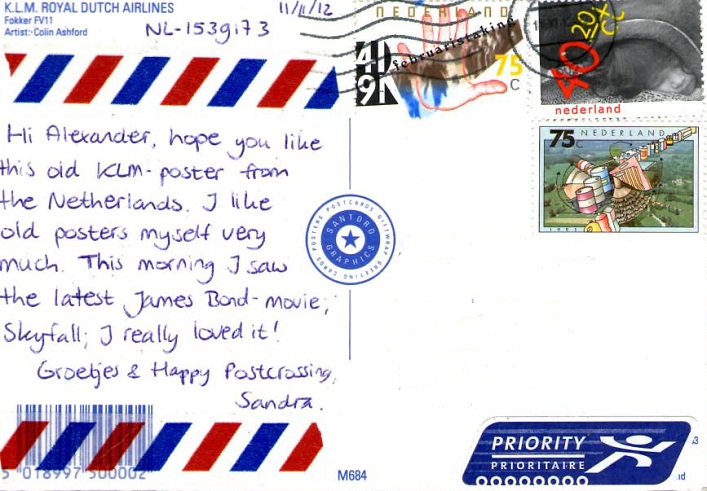 K.L.M. ROYAL DUTCH AIRLINES
Fokker FV11
Artist:- Colin Ashford
11/11/12
NL-1539173
Hi Alexander, hope you like
this old KLM-poster from
the Netherlands. I like
old posters myself very
much. This morning I saw
the latest James Bond-movie,
Skyfall; I really loved it!
Groetjes & Happy Postcrossing,
Sandra.
5 018997 500002
M684
POSTERS POSTCARDS GIFTWRAP GREETING CARDS
SANTORO
GRAPHICS
NEDERLAND
februaristaking
41
91
75
C
40
20
CC
nederland
75C NEDERLAND
1991
PRIORITY
PRIORITAIRE